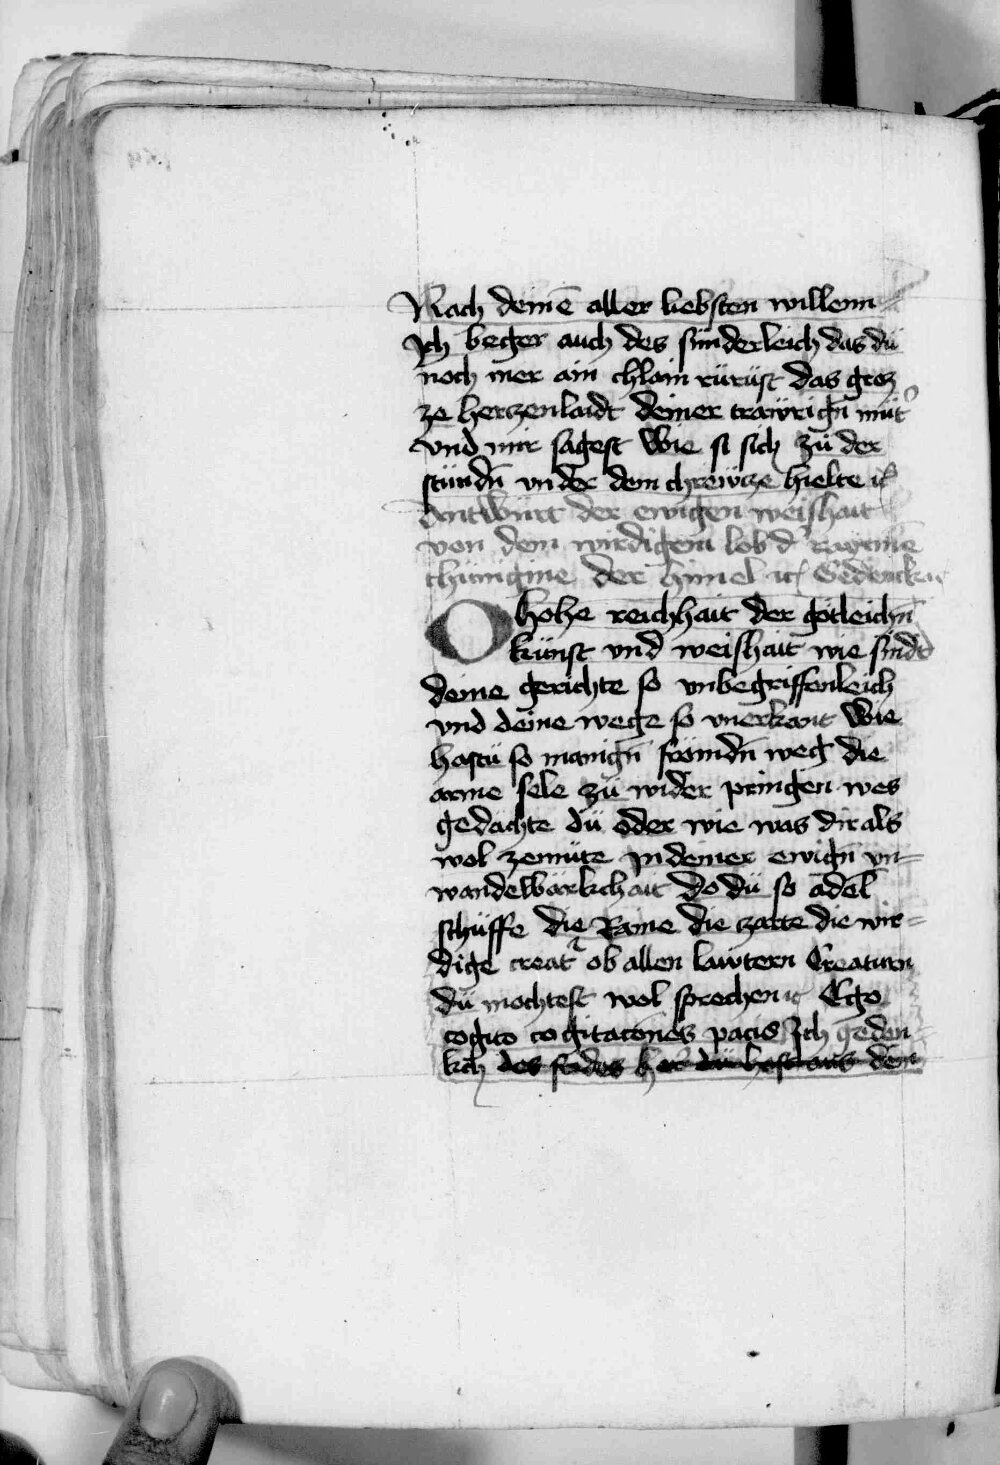 Nach deinē aller liebsten willenn
Ich beger auch des sünderleich das dü
noch mer ain chlain rürüst das groz
ze herczenlaidt deiner trawrign̄ müt̓
vnd mir sagest Wie si sich zü der
stündn̄ vnder dem chrewcze hielte ꝛc̄
Antwürt der ewigen weishait
von dem wirdigem lob d̓ raynnē
chünigine der himel ꝛc̄ Gedenckn̄
O hohe reichhait der götleichn̄
künst vnd weishait wie sindt
deine gerichte so vnbegriffenleich
vnd deine wege so vnerkant Wie
hastü so manign̄ frömdn̄ weg die
arme sele zü wider pringen wes
gedachte dü oder wie was dir als
wol zemüte in deiner ewign̄ vn=
wandelbärkchait do dü so adel
schüffe die Raine die zarte die wir=
dige creat̓ ob allen lawtern Creaturn
dü mochtest wol sprechen ꝛc Ego
cogito cogitacōnes pacis Ich geden
kch des frides her dü hast aus dem